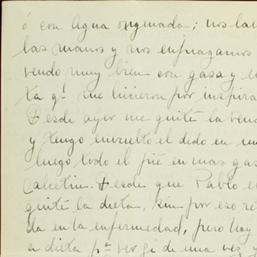 ó con agua oxigenada; nos la
las manos y nos enjuagamos
vendo muy bien con gasa y
ta q! me hicieron por inspira
Desde ayer me quité la ven
y tengo envuelto el dedo en
luego todo el pie en mas gas
calcetin. Desde que Pablo
quité la dieta, sin por eso
da en la enfermedad, pero hoy
a dieta pa ver si de una vez y